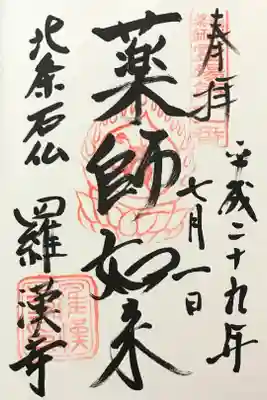 奉拝
平成二十九年
七月一日
薬師如来
北条石仏
羅漢寺